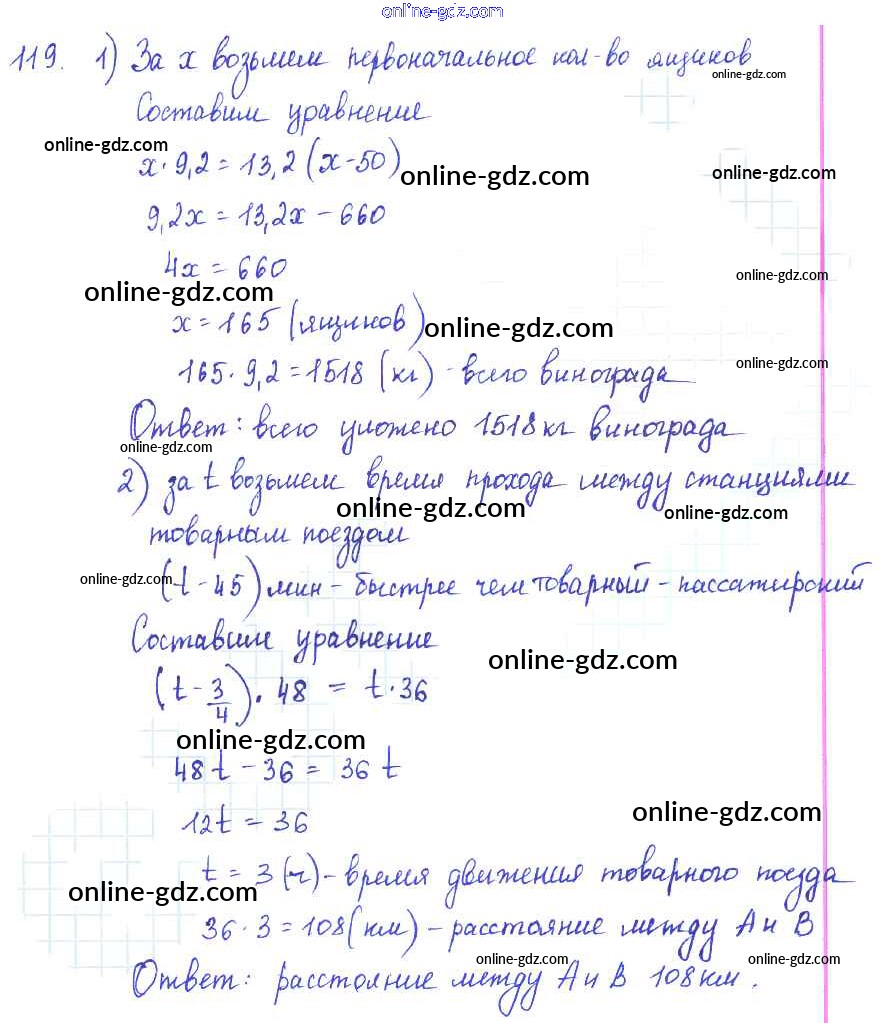 online-gdz.com
119. 1) За x возьмем первоначальное кол-во ящиков
online-gdz.com
Составим уравнение
online-gdz.com
x · 9,2 = 13,2 (x - 50)
online-gdz.com
online-gdz.com
9,2x = 13,2x - 660
4x = 660
online-gdz.com
online-gdz.com
x = 165 (ящиков)
online-gdz.com
165 · 9,2 = 1518 (кг) - всего винограда
online-gdz.com
Ответ: всего уложено 1518 кг винограда
online-gdz.com
2) за t возьмем время прохода между станциями
online-gdz.com
online-gdz.com
товарным поездом
online-gdz.com
(t - 45) мин - быстрее чем товарный - пассажирский
Составим уравнение
online-gdz.com
(t - 3/4) · 48 = t · 36
online-gdz.com
48t - 36 = 36t
12t = 36
online-gdz.com
t = 3 (ч) - время движения товарного поезда
online-gdz.com
36 · 3 = 108 (км) - расстояние между А и В
online-gdz.com
online-gdz.com
Ответ: расстояние между А и В 108 км.